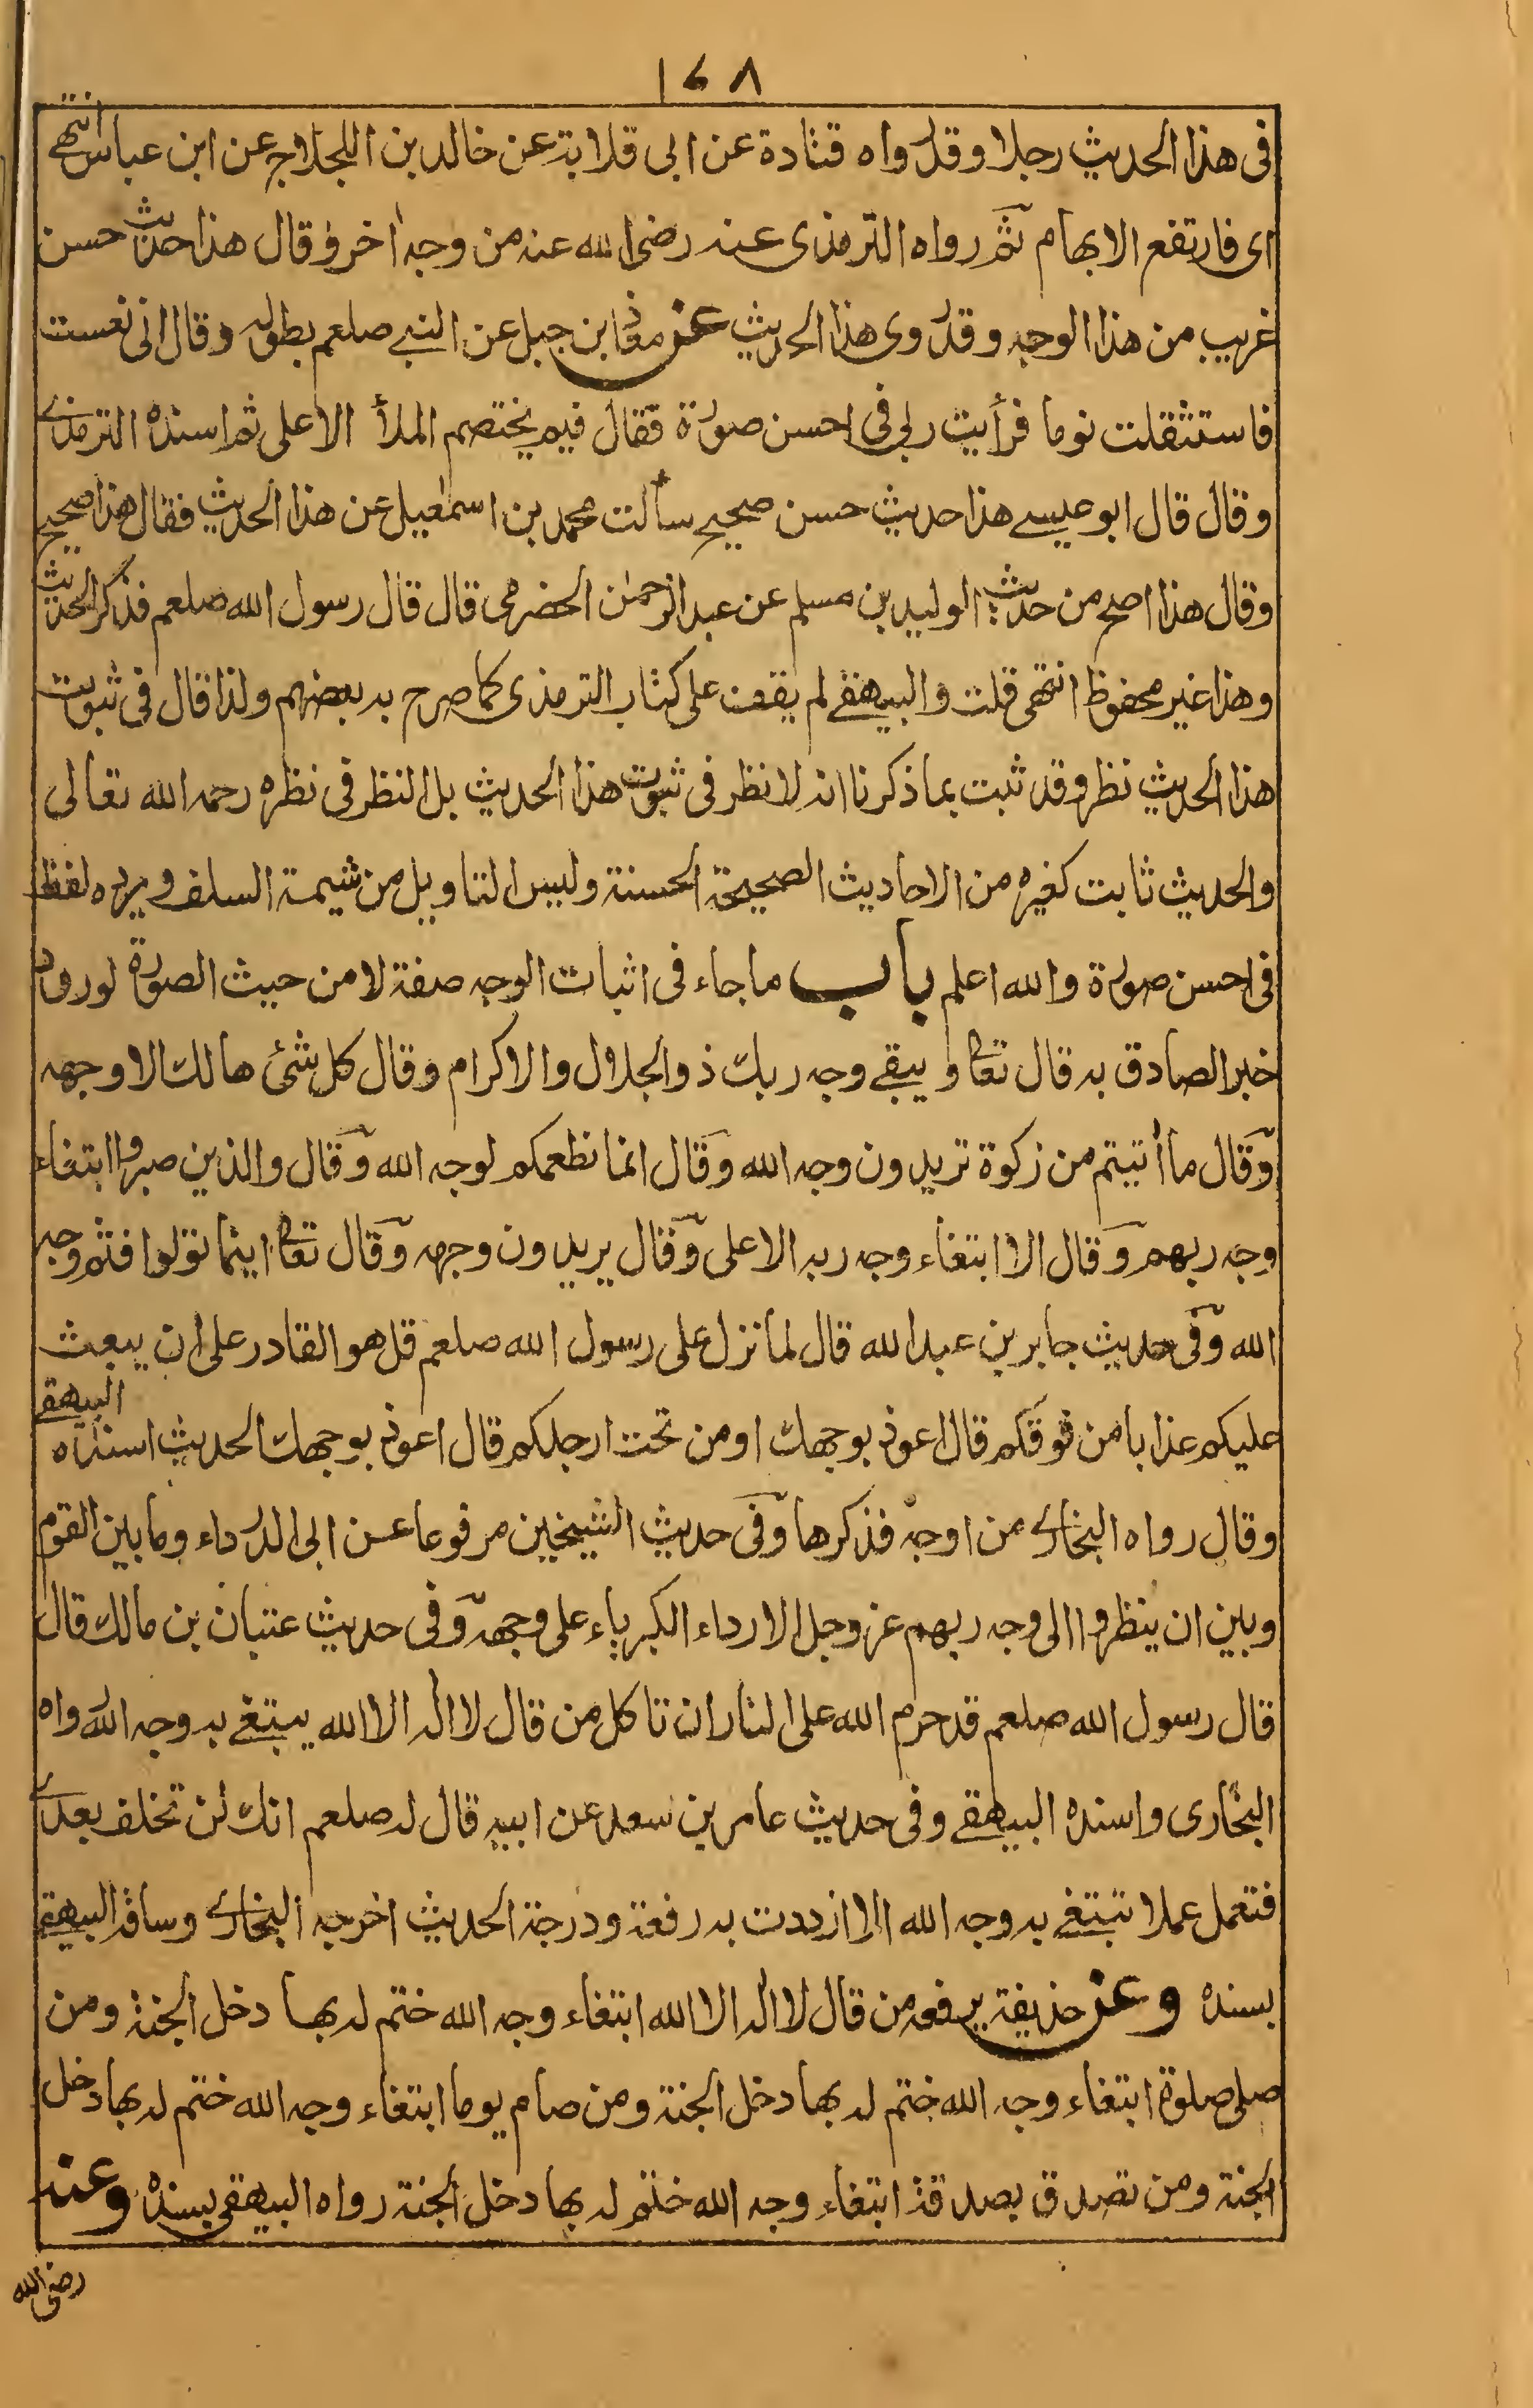 ١٦٨
فی هذا الحدیث رجلا وقد رواه قتادة عن ابی قلابة عن خالد بن اللجلاج عن ابن عباس انتهے
ای فارتفع الابهام ثم رواه الترمذی عنه رضی الله عنه من وجه اٰخر وقال هذا حدیث حسن
غریب من هذا الوجه وقد روی هذا الحدیث عن معاذ ابن جبل عن النبے صلعم بطوله وقال انی نعست
فاستثقلت نوما فرأیت ربی فی احسن صورة فقال فیم یختصم الملأ الاعلی ثم اسنده الترمذے
وقال قال ابو عیسے هذا حدیث حسن صحیح سألت محمد بن اسمٰعیل عن هذا الحدیث فقال هذا صحیح
وقال هذا اصح من حدیث الولید بن مسلم عن عبد الرحمٰن الحضرمی قال قال رسول الله صلعم فذکر الحدیث
وهذا غیر محفوظ انتهی قلت والبیهقے لم یقف علی کتاب الترمذی کما صرح به بعضهم ولذا قال فی ثبوت
هذا الحدیث نظر وقد ثبت بما ذکرنا انه لا نظر فی ثبوت هذا الحدیث بل النظر فی نظره رحمه الله تعالی
والحدیث ثابت کغیره من الاحادیث الصحیحة الحسنة ولیس التاویل من شیمة السلف ویرده لفظ
فی احسن صورة والله اعلم باب ما جاء فی اثبات الوجه صفة لا من حیث الصورة لورود
خبر الصادق به قال تعا ویبقے وجه ربك ذو الجلال والاکرام وقال کل شئ هالك الا وجهه
وقال ما أتیتم من زکوة تریدون وجه الله وقال انما نطعمکم لوجه الله وقال والذین صبروا ابتغاء
وجه ربهم وقال الا ابتغاء وجه ربه الاعلی وقال یریدون وجهه وقال تعا اینما تولوا فثم وجه
الله وفی حدیث جابر بن عبد الله قال لما نزل علی رسول الله صلعم قل هو القادر علی ان یبعث
علیکم عذابا من فوقکم قال اعوذ بوجهك او من تحت ارجلکم قال اعوذ بوجهك الحدیث اسنده البیهقے
وقال رواه البخارے من اوجه فذکرها وفی حدیث الشیخین مرفوعا عن ابی الدرداء وما بین القوم
وبین ان ینظروا الی وجه ربهم عز وجل الا رداء الکبریاء علی وجهه وفی حدیث عتبان بن مالك قال
قال رسول الله صلعم قد حرم الله علی النار ان تاکل من قال لا اله الا الله یبتغے به وجه الله رواه
البخاری واسنده البیهقے وفی حدیث عامر بن سعد عن ابیه قال له صلعم انك لن تخلف بعدے
فتعمل عملا تبتغے به وجه الله الا ازددت به رفعة ودرجة الحدیث اخرجه البخارے وساقه البیهقے
بسنده وعن حذیفة یرفعه من قال لا اله الا الله ابتغاء وجه الله ختم له بها دخل الجنة ومن
صلی صلوة ابتغاء وجه الله ختم له بها دخل الجنة ومن صام یوما ابتغاء وجه الله ختم له بها دخل
الجنة ومن تصدق بصدقة ابتغاء وجه الله ختم له بها دخل الجنة رواه البیهقی بسنده وعنه
رضی الله